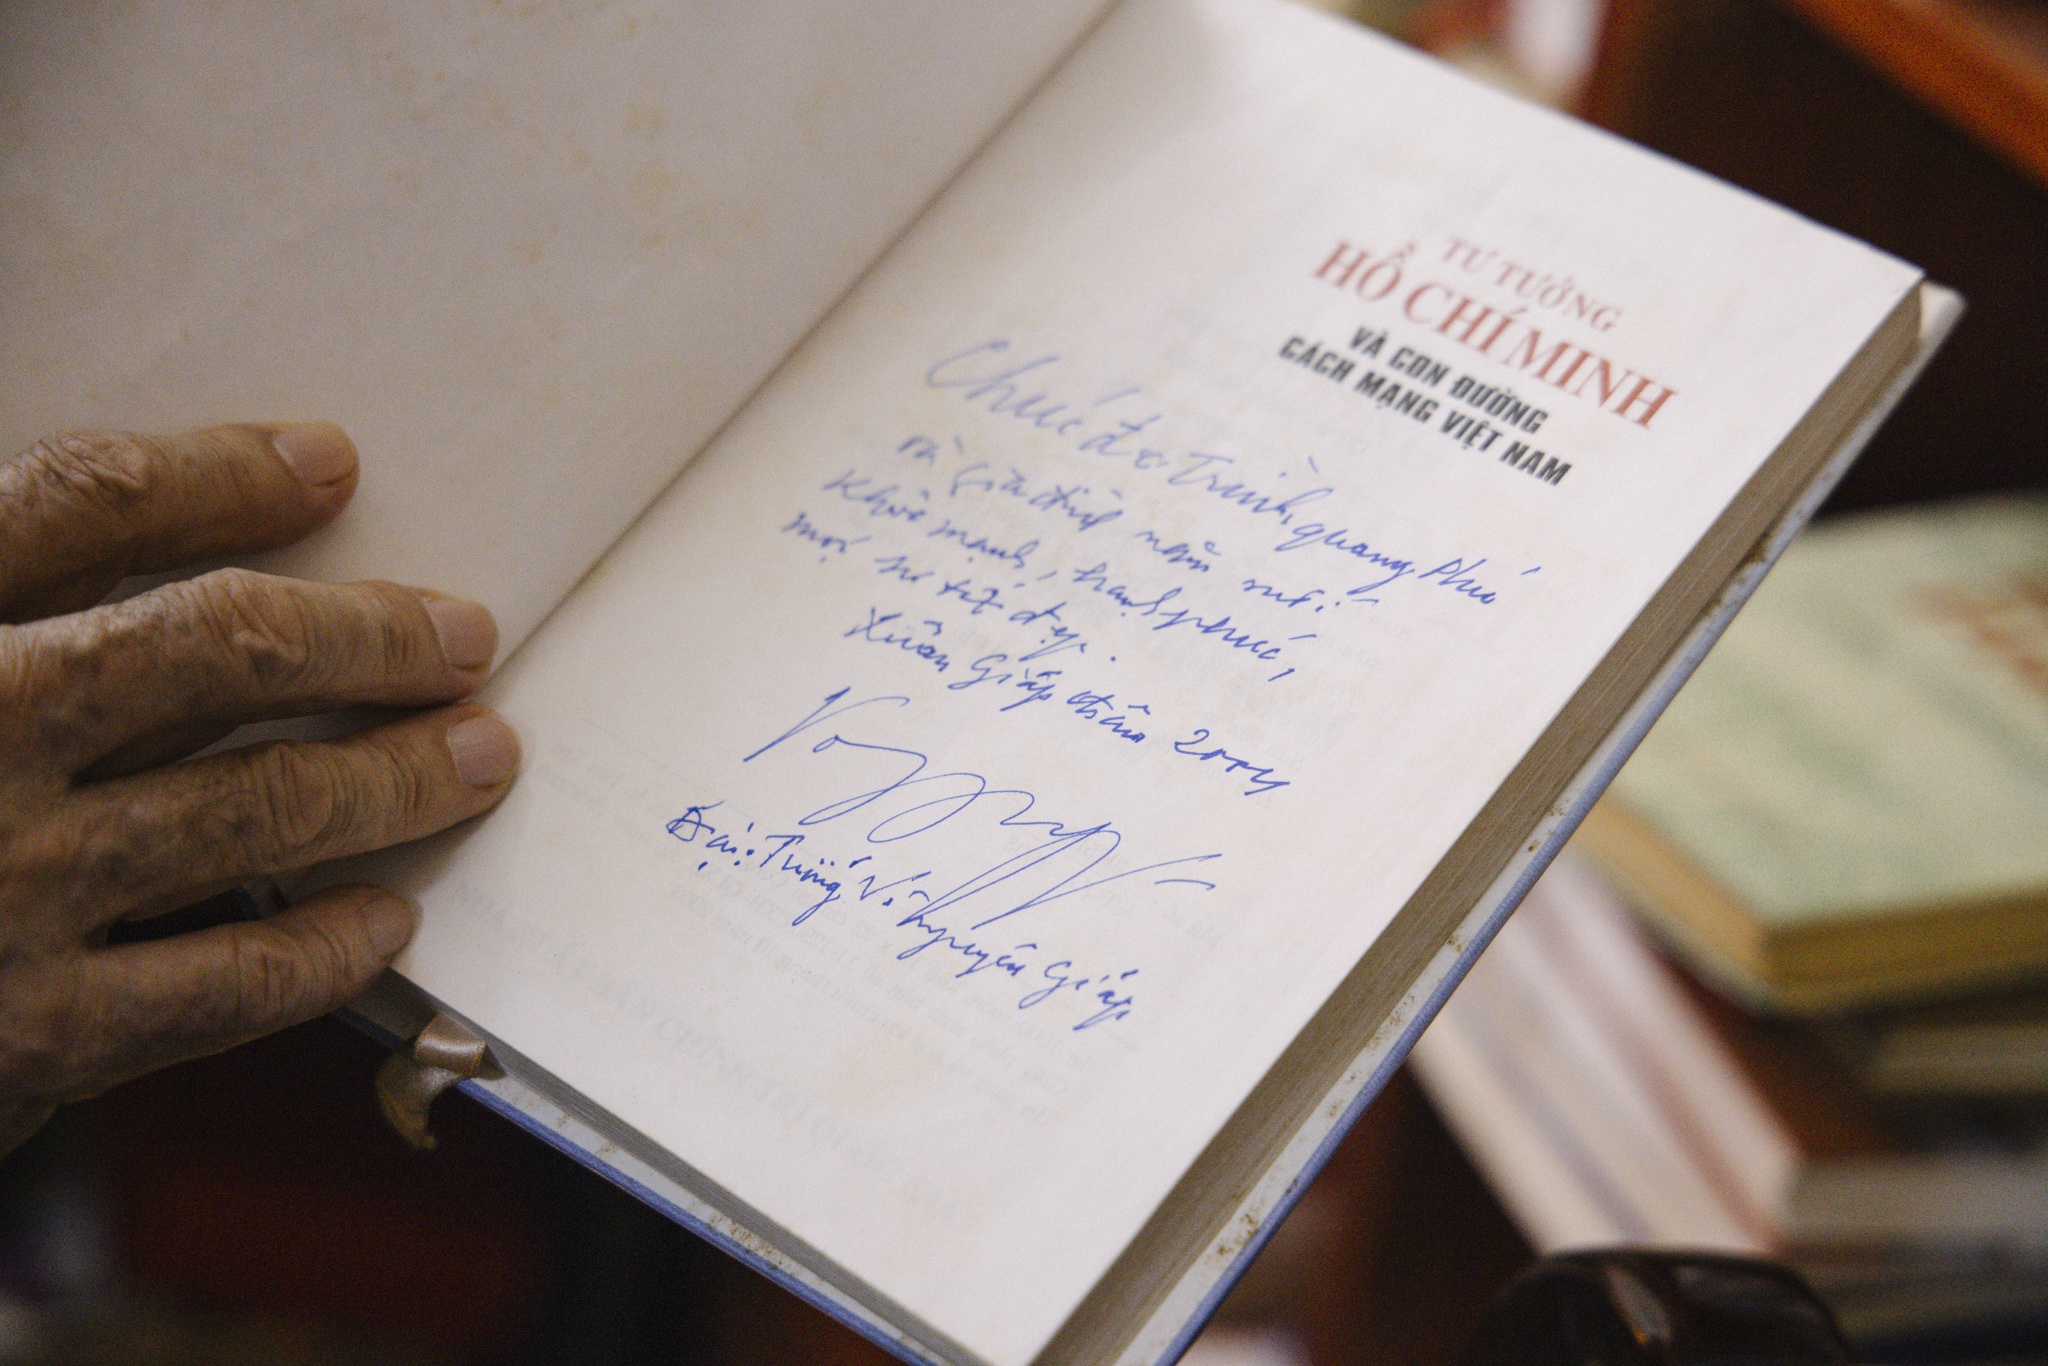 TƯ TƯỞNG
HỒ CHÍ MINH
VÀ CON ĐƯỜNG
CÁCH MẠNG VIỆT NAM
Chúc đ/c Trình quang Phú
và gia đình năm mới
Khỏe mạnh, hạnh phúc,
mọi sự tốt đẹp.
Xuân Giáp thân 2004
Đại Tướng Võ Nguyên Giáp